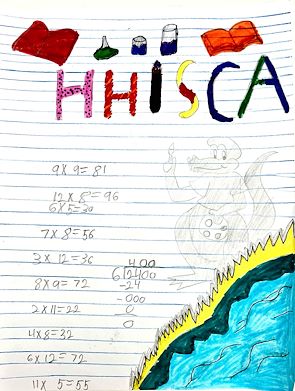 HHISCA
9x9=81
12x8=96
6x5=30
7x8=56
3x12=36
8x9=72
2x11=22
4x8=32
6x12=72
11x5=55
400
6)2400
-24
-000
0
0